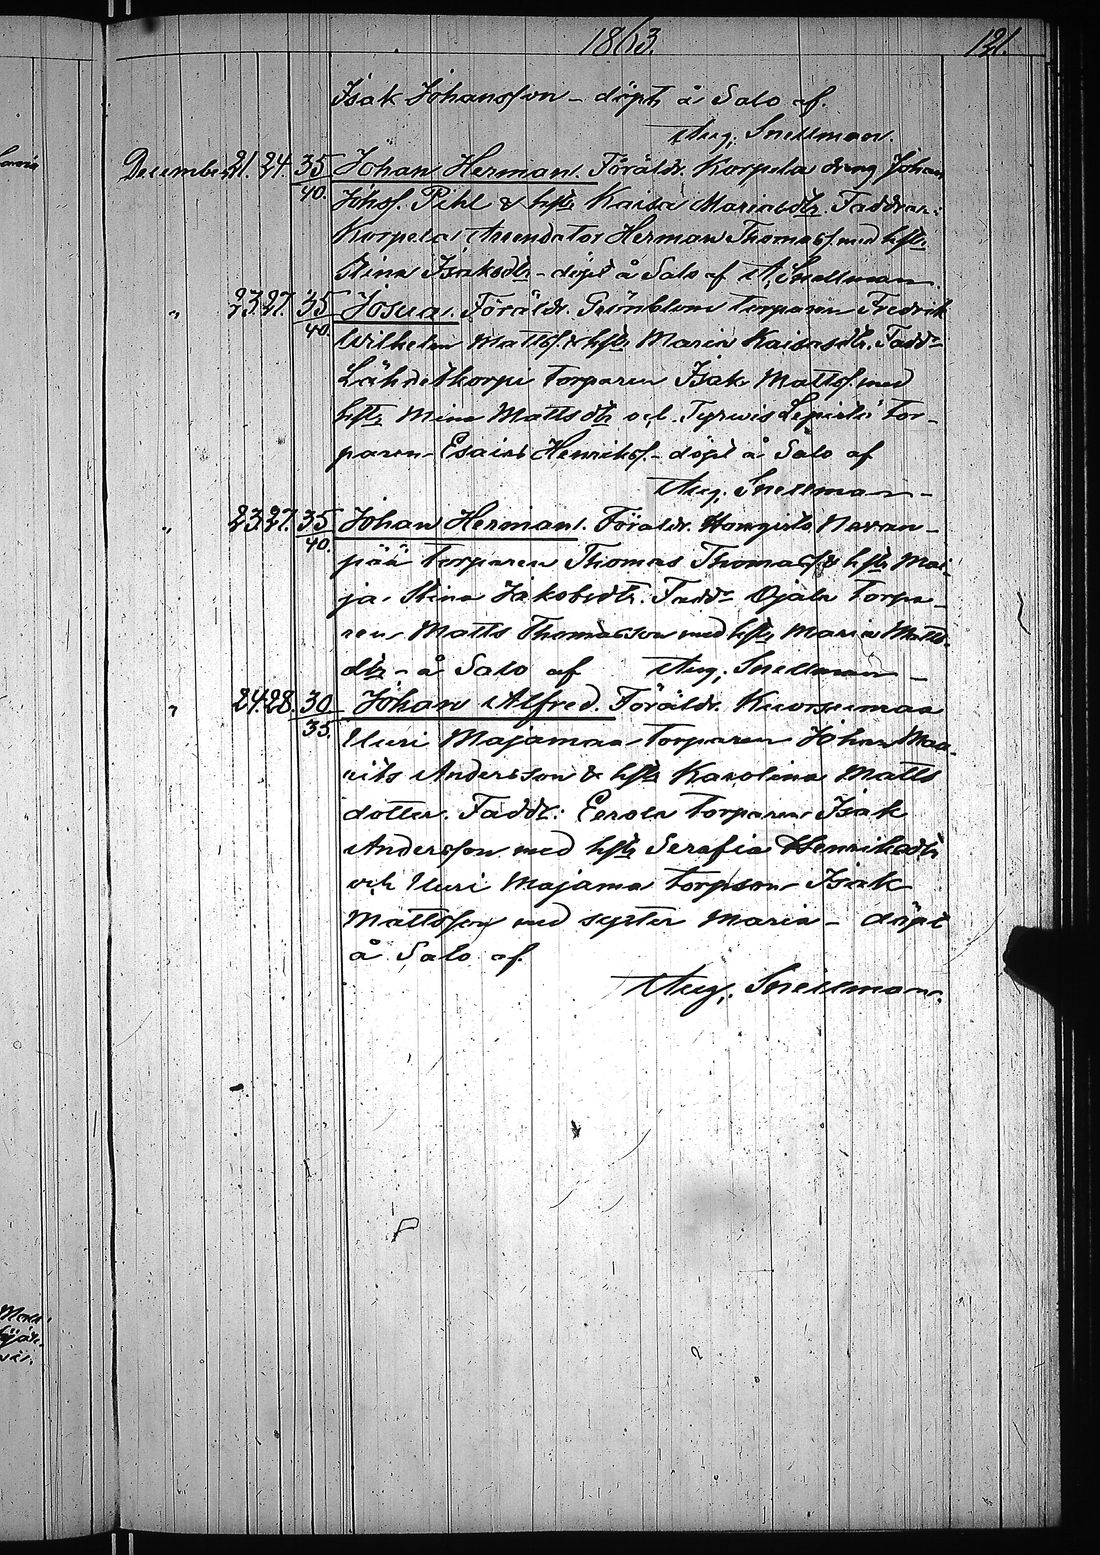 1863. 121.
Isak Johansson – döpt å Salo af.
Aug. Snellman.
December 21. 24. 35/40. Johan Herman. Föräldr. Korpela dreng Johan
Johsf. Pihl & hstr Kaisa Mariasdtr. Faddrar:
Korpela Arendator Herman Thomasf. med hstr
Stina Isaksdtr – döpt å Salo af A. Snellman.
" 23. 27. 35/40 Josua. Föräldr. Grönblom torparen Fredrik
Wilhelm Mattsf. & hstr Maria Kaisasdtr. Fadd:
Lähdetkorpi torparen Isak Mattsf. med
hstr Mina Mattsdtr och Tyrwis Lepistö tor-
paren Esaias Henriksf. – döpt å Salo af
Aug. Snellman –
" 23. 27. 35/40. Johan Herman. Föräldr. Nevan-
pää torparen Thomas Thomasf. & hstr Mai-
ja Stina Jakobsdtr. Fadd: Ojala torpa-
ren Matts Thomasson med hstr Maria Matts-
dtr – å Salo af Aug. Snellman –
" 24. 28. 30/35. Johan Alfred. Föräldr. Kuorsumaa
Uuri Majamaa torparen Johan Mau-
rits Andersson & hstr Karolina Matts
dotter. Faddr: Eerola torparen Isak
Andersson med hstr Serafia Henriksdtr
och Uuri Majama torpson Isak
Mattsson med syster Maria – döpt
å Salo af.
Aug. Snellman.